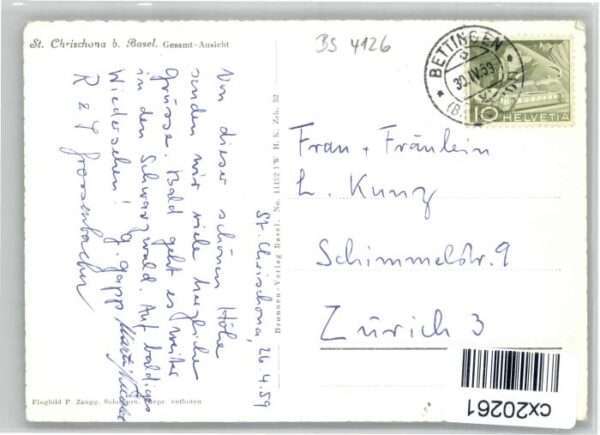 St. Chrischona b. Basel. Gesamt-Ansicht
BS 4126
BETTINGEN
30.IV.59
10
HELVETIA
St. Chrischona, 26.4.59
Von dieser schönen Höhe
senden wir viele herzliche
Grüsse. Bald geht es weiter
in den Schwarzwald. Auf baldiges
Wiedersehen! G. Gapp
R & Y Grossenbacher
Frau + Fräulein
L. Kunz
Schimmelstr. 9
Zürich 3
Brunnen-Verlag Basel. No. 11152 W H. S. Zch. 52
Flugbild P. Zaugg, Repr. verboten
cx20261